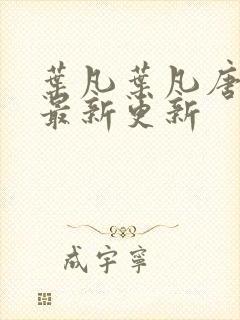 葉凡葉凡唐
最新更新
成宇寧